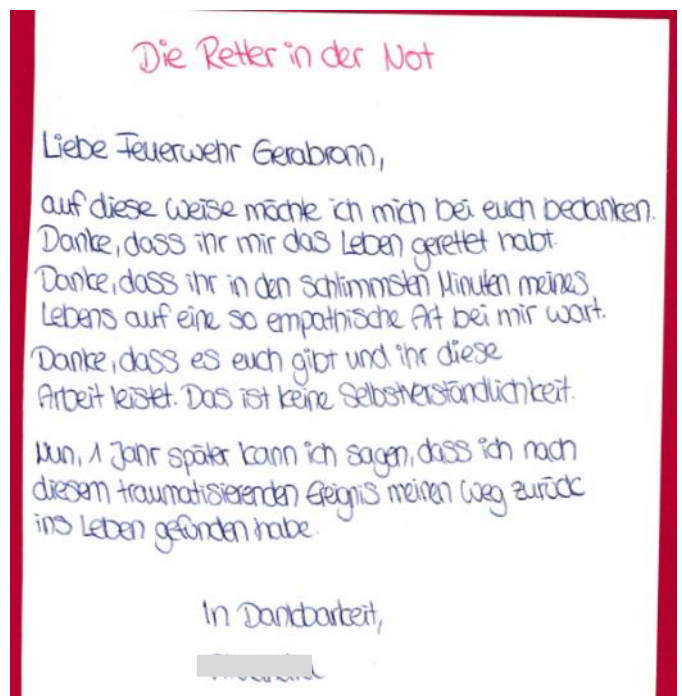 Die Retter in der Not
Liebe Feuerwehr Gerabronn,
auf diese Weise möchte ich mich bei euch bedanken.
Danke, dass ihr mir das Leben gerettet habt.
Danke, dass ihr in den schlimmsten Minuten meines
Lebens auf eine so empathische Art bei mir wart.
Danke, dass es euch gibt und ihr diese
Arbeit leistet. Das ist keine Selbstverständlichkeit.
Nun, 1 Jahr später kann ich sagen, dass ich nach
diesem traumatisierenden Ereignis meinen Weg zurück
ins Leben gefunden habe.
In Dankbarkeit,